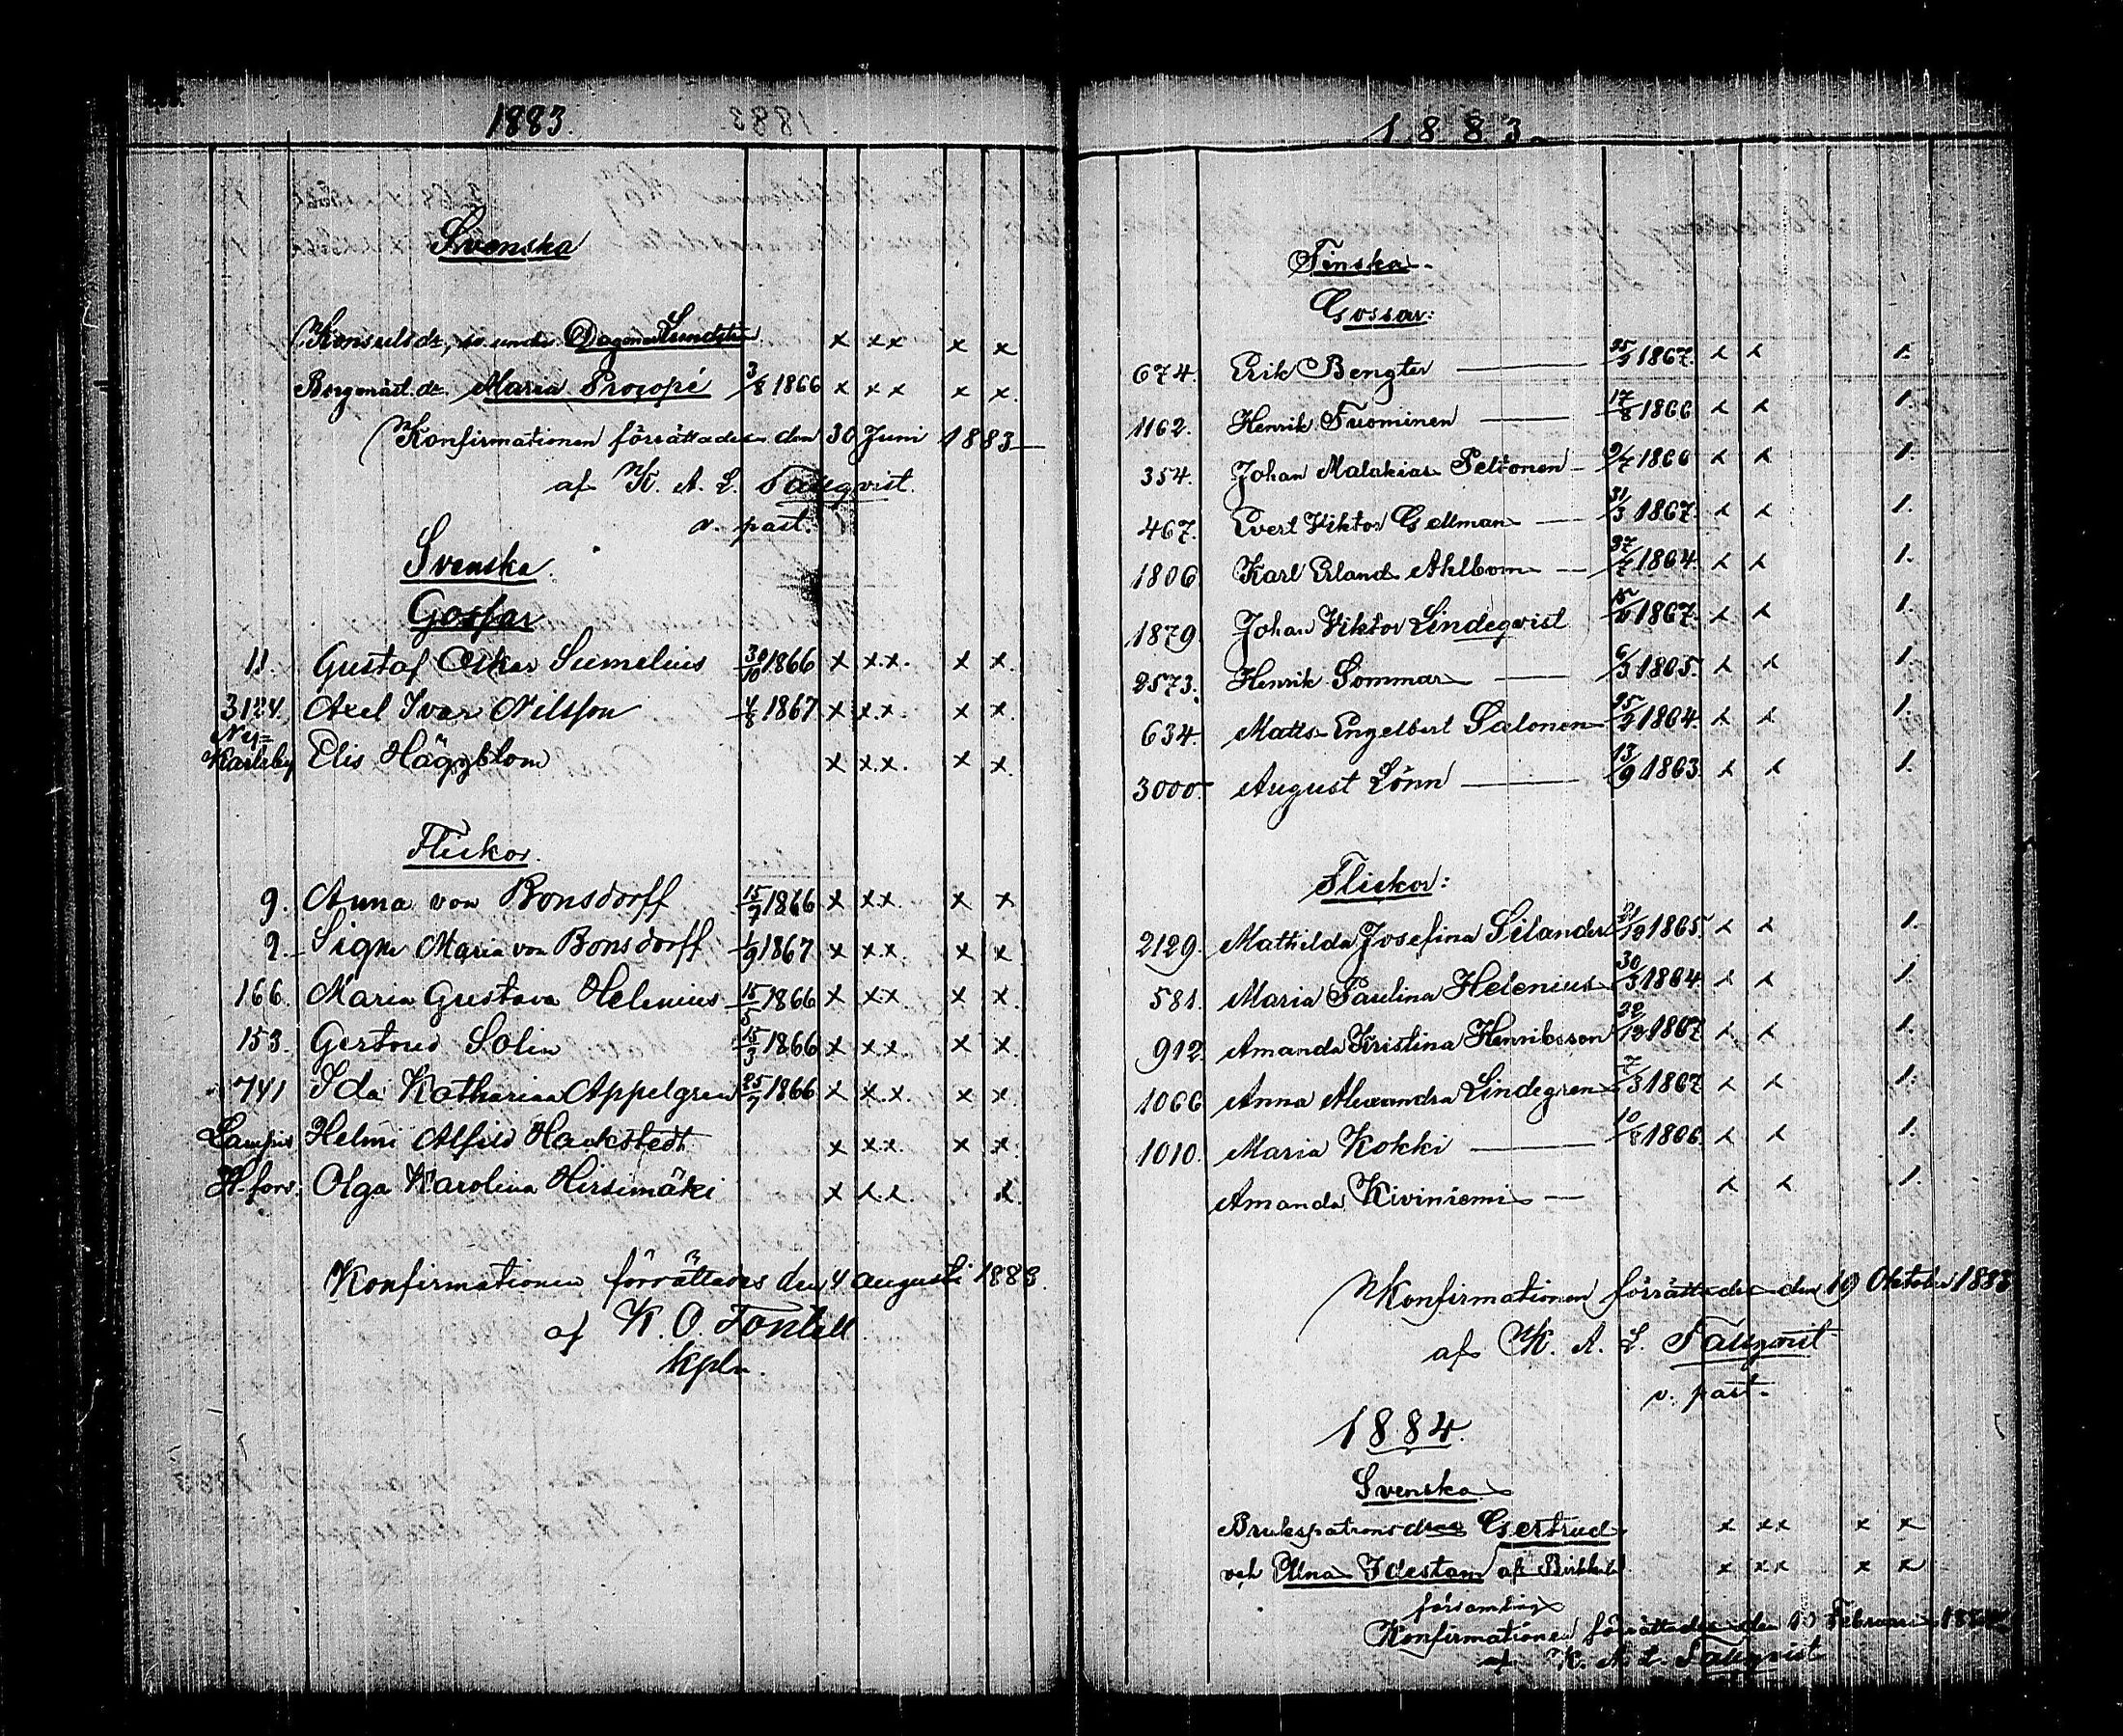 1883.
Svenska
Konsulsdr, Dagmar Sundstr
Borgmäst. dr. Maria Procopé 3/8 1866 x x x x x
Konfirmationen förrättades den 30 Juni 1883
af K. A. L. Tallqvist
v. past.
Svenska
Gossar
11. Gustaf Oskar Sumelius 30/10 1866 x x.x. x x.
3124. Axel Ivar Nilsson 4/8 1867 x x.x. x x.
Ny-
Karleby Elis Häggblom x x.x. x x.
Flickor.
9. Anna von Bonsdorff 15/7 1866 x x.x. x x
9. Signe Maria von Bonsdorff 1/9 1867 x x.x. x x.
166. Maria Gustava Helenius 15/5 1866 x x.x x x.
153. Gertrud Solin 15/3 1866 x x.x. x x.
741 Ida Katharina Appelgren 25/7 1866 x x.x. x x.
Lampis Helmi Alfild Hackstedt x x.x. x x.
H-fors. Olga Karolina Hirsimäki x x.x. x.
Konfirmationen förrättades den 4 augusti 1883.
af K. O. Fontell
kpln.
1883.
Finska
Gossar:
674. Erik Bengter 25/9 1867. x x 1.
1162. Henrik Tuominen 17/8 1866 x x 1.
354. Johan Malakias Peltonen 9/7 1866 x x 1.
467. Evert Viktor Gellman 31/3 1867 x x 1.
1806 Karl Erland Ahlbom 27/7 1864. x x 1.
1879. Johan Viktor Lindeqvist 1867. x x 1.
2573. Henrik Sommar 6/3 1865. x x 1.
634. Matts Engelbert Salonen 25/2 1864. x x 1.
3000. August Lönn 13/9 1863. x x 1.
Flickor:
2129. Mathilda Josefina Silander 21/12 1865. x x 1.
581. Maria Paulina Helenius 30/3 1864 x x 1.
912 Amanda Kristina Henriksson 22/12 1867 x x 1.
1066 Anna Alexandra Lindegren 7/3 1867 x x 1.
1010. Maria Kokki 10/8 1866. x x 1.
Amanda Kiviniemi x x 1.
Konfirmationen förrättades den 19 Oktober 1883
af K. A. L. Tallqvist
v. past.
1884.
Svenska
Brukspatronsdrar Gertrud x x x x x
och Elna Idestam af Birkkala x x x x x
församling
Konfirmationen förrättades den 10 Februari 1884
af K. A. L. Tallqvist